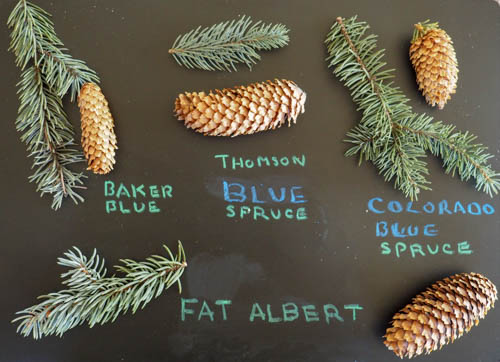 BAKER
BLUE
THOMSON
BLUE
SPRUCE
COLORADO
BLUE
SPRUCE
FAT ALBERT